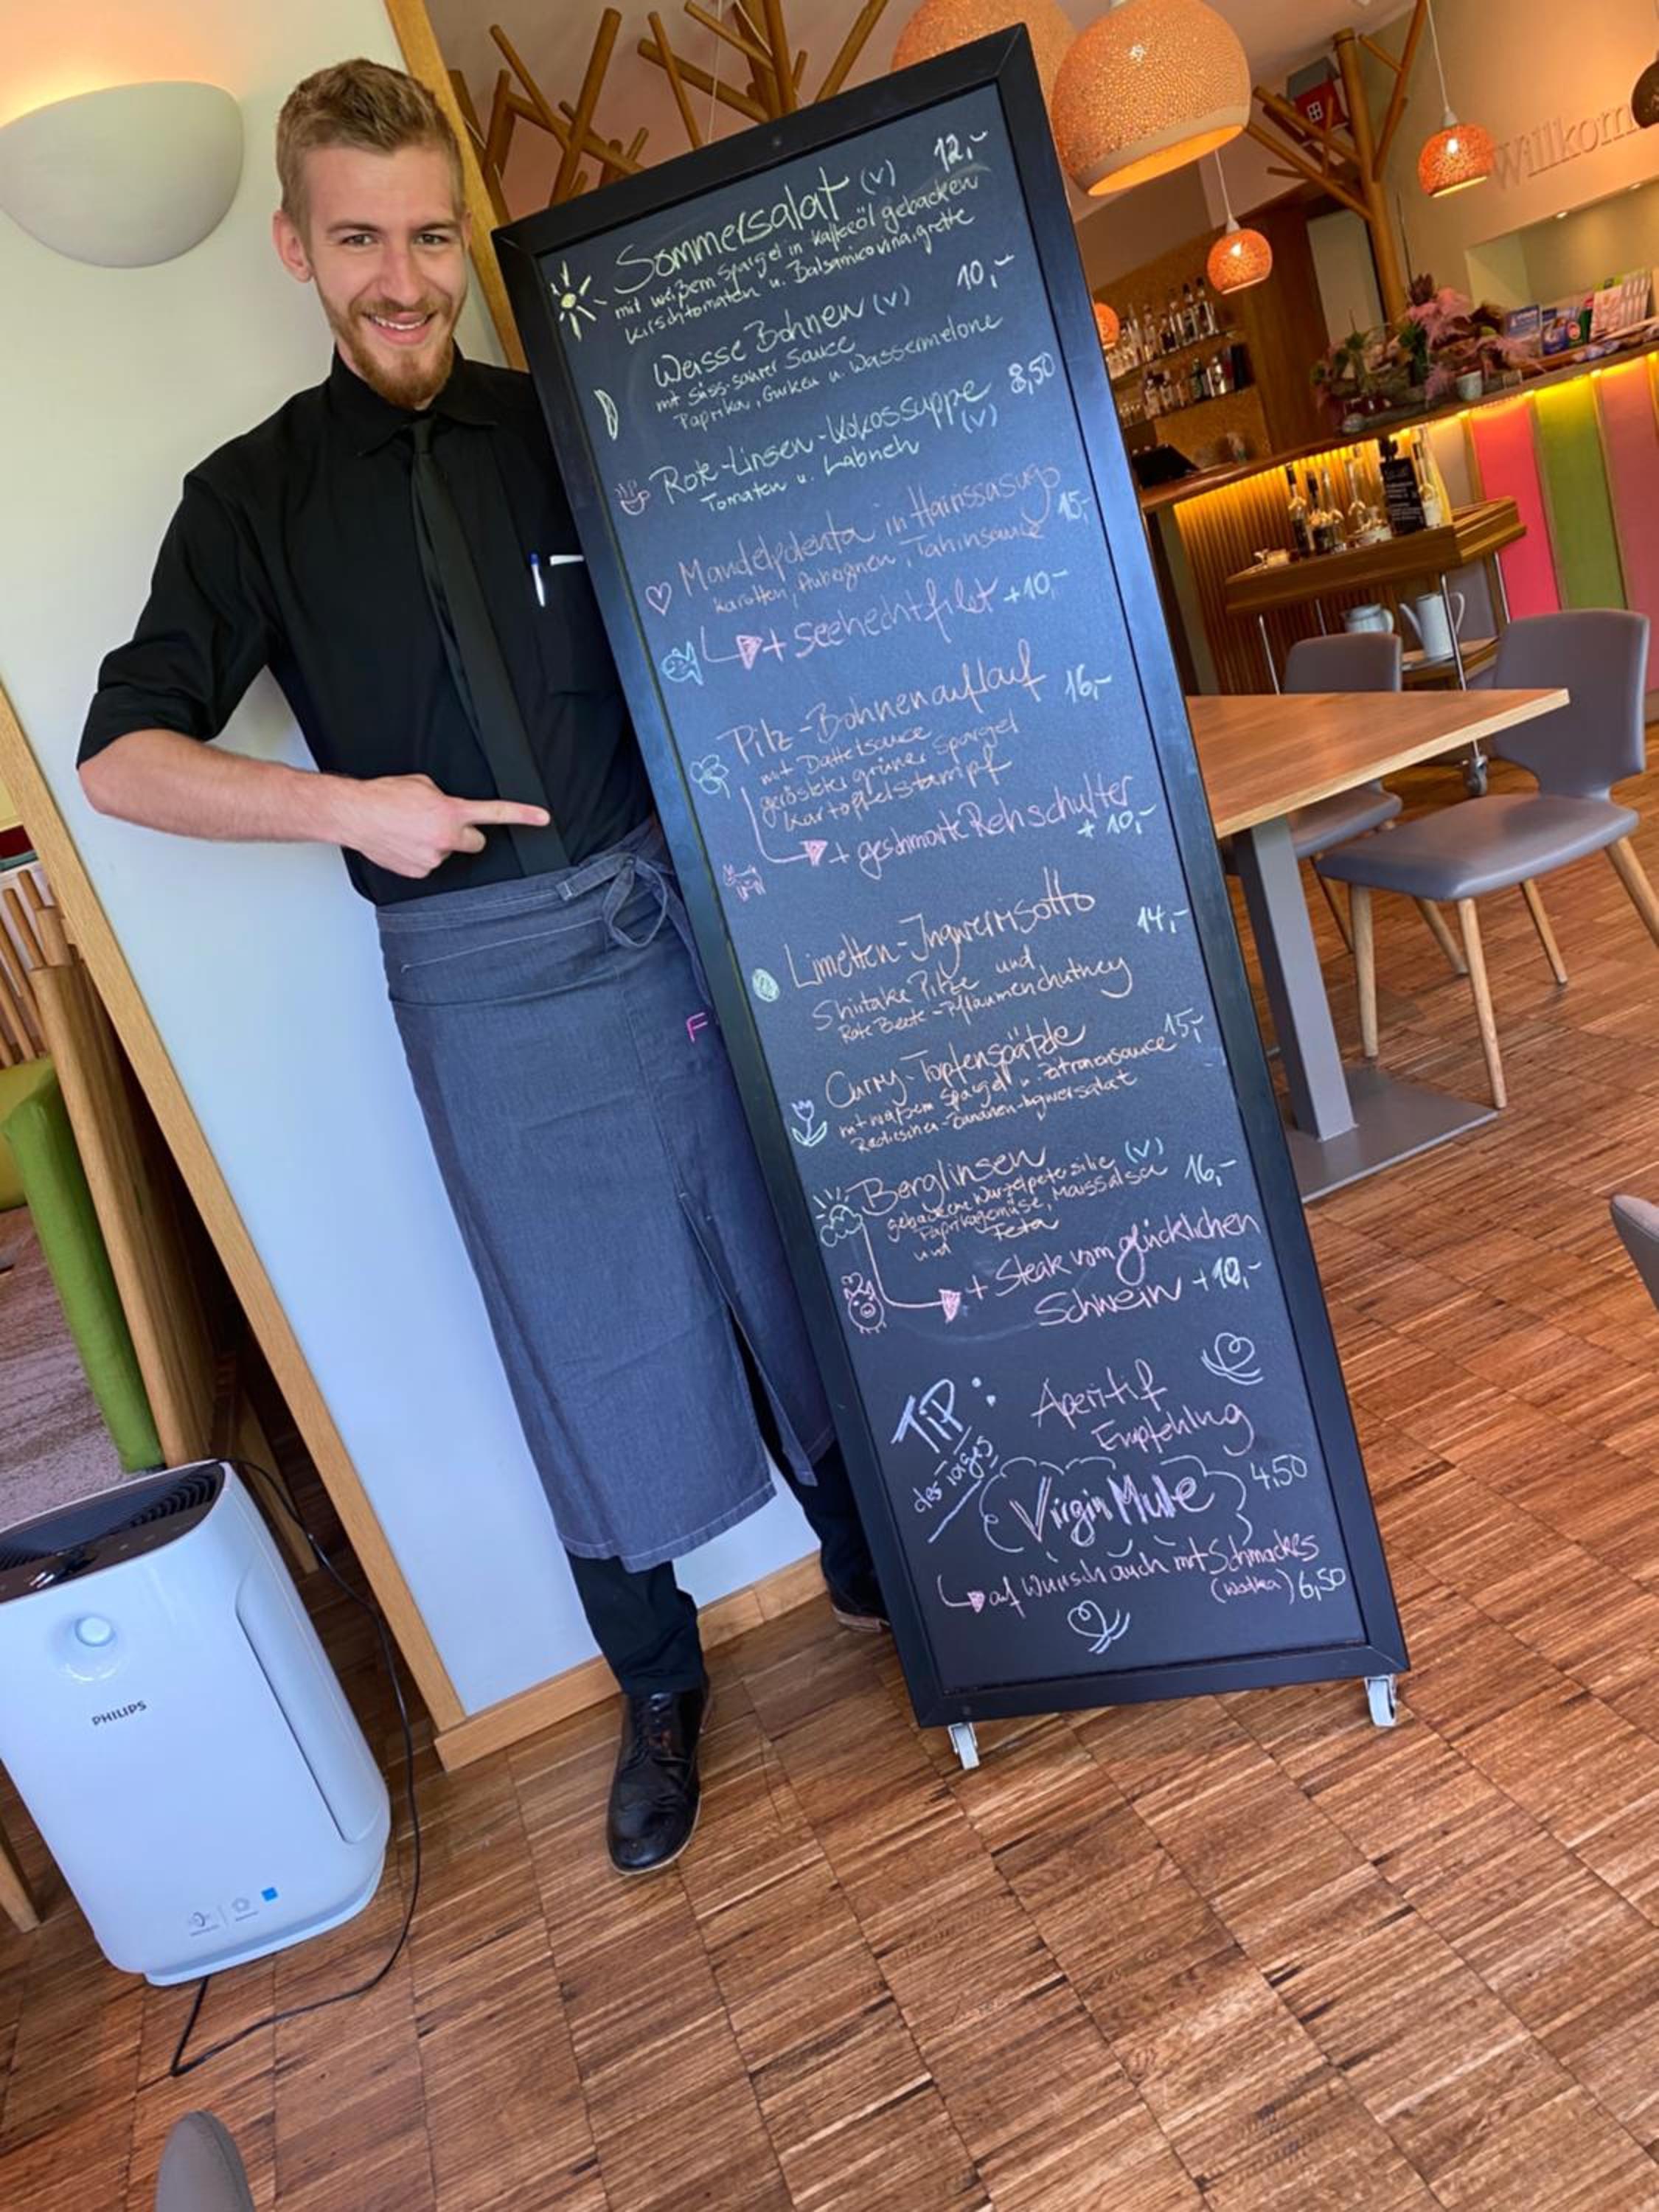 Willkom
Sommersalat (v) 12,-
mit weißem Spargel in Kaffeeöl gebacken
Kirschtomaten u. Balsamicovinaigrette
Weisse Bohnen (v) 10,-
mit süss-saurer Sauce
Paprika, Gurken u. Wassermelone
Rote-Linsen-Kokossuppe 8,50
(v)
Tomaten u. Labneh
Mandelpolenta in Harissasugo
15,-
Karotten, Auberginen, Tahinsauce
+ Seehechtfilet +10,-
Pilz-Bohnenauflauf 16,-
mit Dattelsauce
gerösteter grüner Spargel
Kartoffelstampf
+ geschmorte Rehschulter
+ 10,-
Limetten-Ingwerrisotto 14,-
Shiitake Pilze und
Rote Beete-Pflaumenchutney
Curry-Topfenspätzle 15,-
mit weißem Spargel u. Zitronensauce
Radieschen-Bananen-Ingwersalat
Berglinsen (v) 16,-
gebackene Wurzelpetersilie
Paprikagemüse, Maissalsa
und Feta
+ Steak vom glücklichen
Schwein +10,-
TIP:
des Tages
Aperitif
Empfehlung
Virgin Mule 4,50
auf Wunsch auch mit Schmackes
(Wodka) 6,50
F
PHILIPS